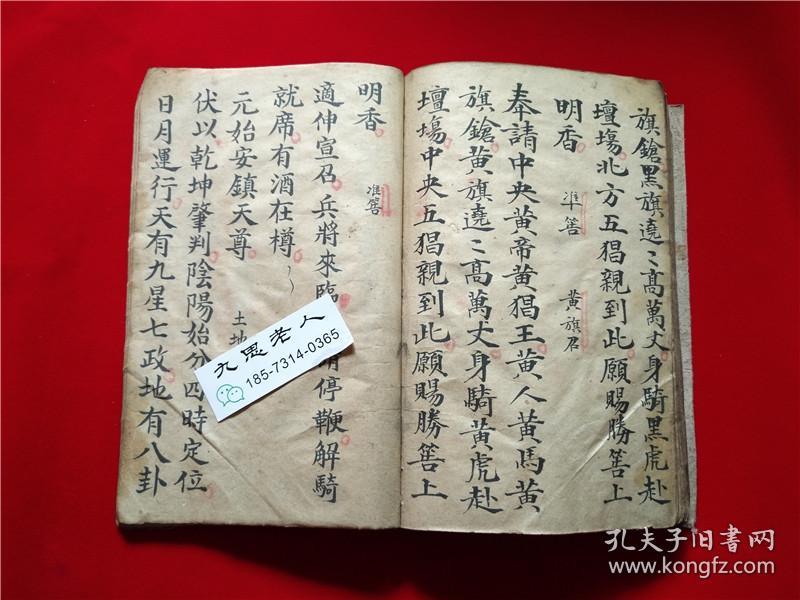 旗鎗黑旗遶〻高萬丈身騎黑虎赴
壇場北方五猖親到此願賜勝筶上
明香 準筶 黄旗召
奉請中央黄帝黄猖王黄人黄馬黄
旗鎗黄旗遶〻高萬丈身騎黄虎赴
壇場中央五猖親到此願賜勝筶上
明香 準筶
適伸宣召兵將來臨 停鞭解騎
就席有酒在樽
元始安鎮天尊 土地
伏以乾坤肇判陰陽始分四時定位
日月運行天有九星七政地有八卦
九思老人
185-7314-0365
孔夫子旧书网
www.kongfz.com